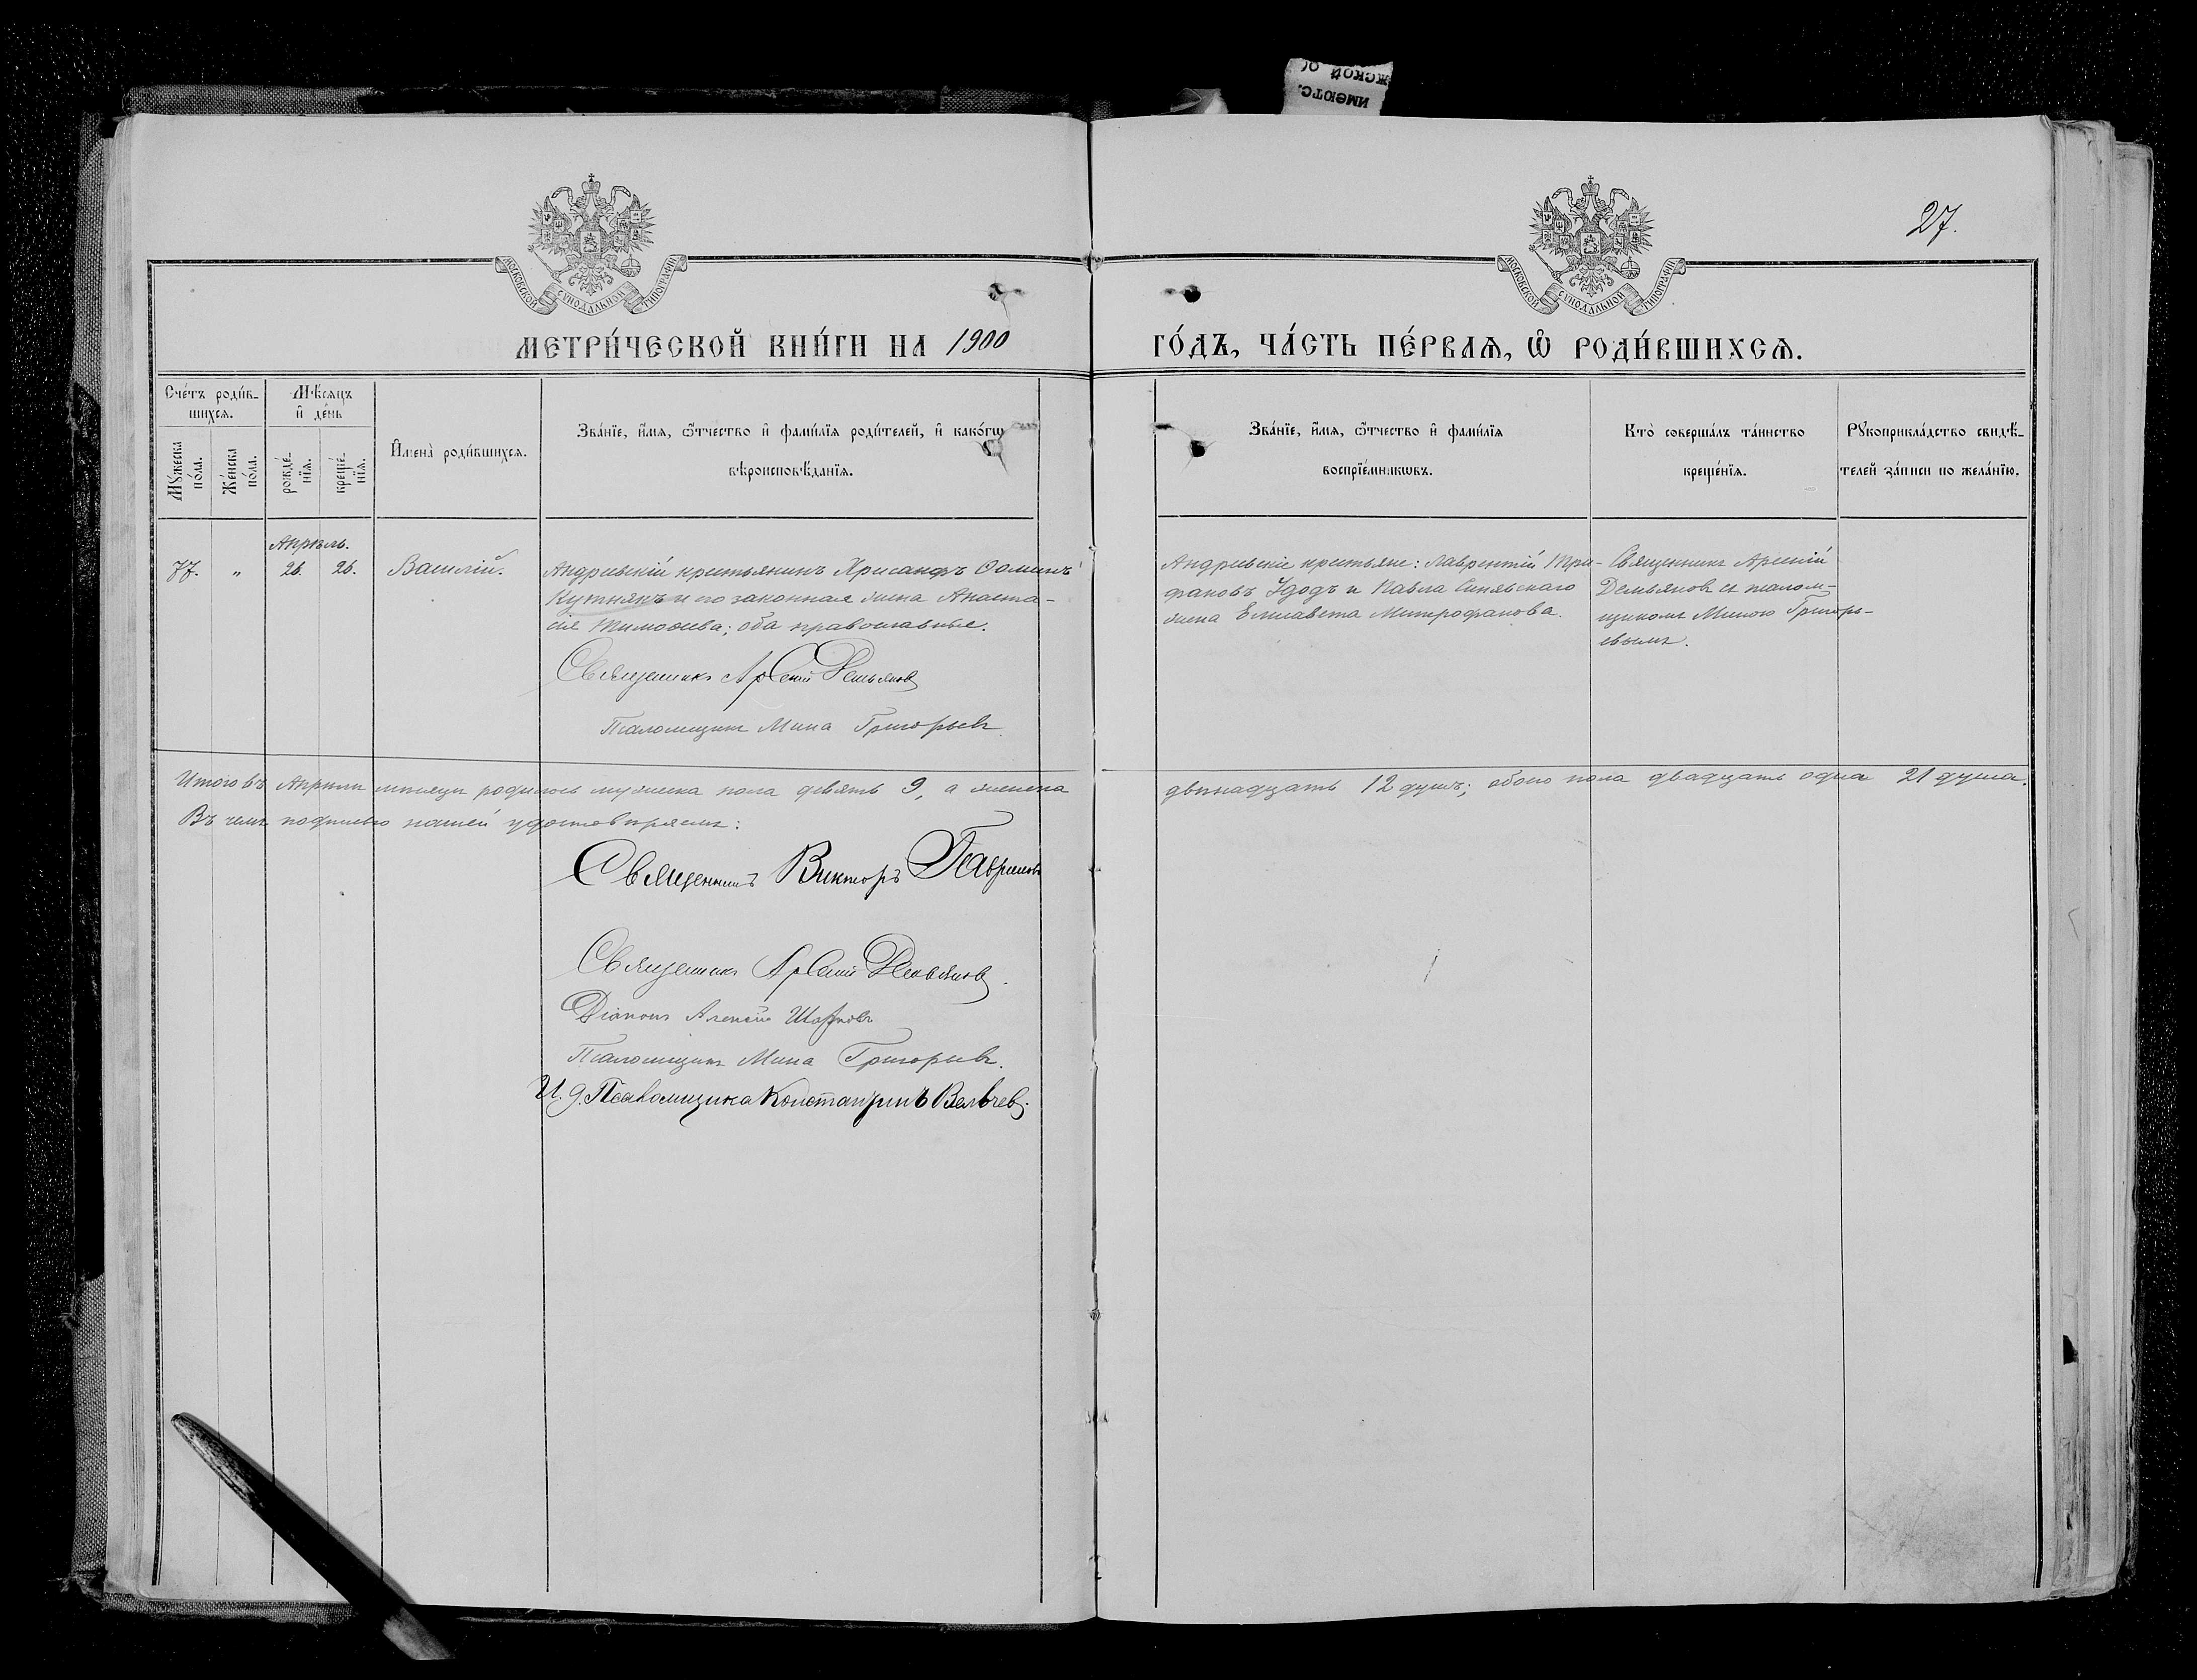 27.
МОСКОВСКОЙ СѴНОДАЛЬНОЙ ТИПОГРАФІИ
МОСКОВСКОЙ СѴНОДАЛЬНОЙ ТИПОГРАФІИ
МЕТРИ́ЧЕСКОЙ КНИ́ГИ НА 1900 ГО́ДЪ, ЧА́СТЬ ПЕ́РВАѦ, Ѡ РОДИ́ВШИХСѦ.
Сче́тъ роди́в-
шихсѧ.
Мꙋ́жеска по́ла.
Же́нска по́ла.
Мѣ́сѧцъ
и҆ де́нь
рожде́-нїѧ.
креще́-нїѧ.
И҆мена̀ роди́вшихсѧ.
Зва́нїе, и҆́мѧ, ѻ҆́тчество и҆ фами́лїѧ роди́телей, и҆ како́гѡ
вѣроисповѣ́данїѧ.
Зва́нїе, и҆́мѧ, ѻ҆́тчество и҆ фами́лїѧ
воспрїе́мникѡвъ.
Кто̀ соверша́лъ та́инство
креще́нїѧ.
Рꙋкоприкла́дство свидѣ́-
телей за́писи по жела́нїю.
Апрѣль.
77. " 26. 26. Василій.
Андреевскій крестьянинъ Хрисанфъ Ѳоминъ
Кутнякъ и его законная жена Анаста-
сія Тимоѳеева; оба православные.
Священникъ Арсеній Демьяновъ
Псаломщикъ Мина Григорьевъ
Андреевскіе крестьяне: Лаврентій Три-
фановъ Удодъ и Павла Синявскаго
жена Елисавета Митрофанова.
Священникъ Арсеній
Демьяновъ съ псалом-
щикомъ Миною Григорь-
евымъ.
Итого въ Апрѣлѣ мѣсяцѣ родилось мужеска пола девять 9, а женска двѣнадцать 12 душъ; обоего пола двадцать одна 21 душа.
Въ чемъ подписью нашей удостовѣряемъ:
Священникъ Викторъ Гавриловъ
Священникъ Арсеній Демьяновъ.
Діаконъ Алексій
Псаломщикъ Мина Григорьевъ.
И. д. Псаломщика Константинъ Вельчевъ.